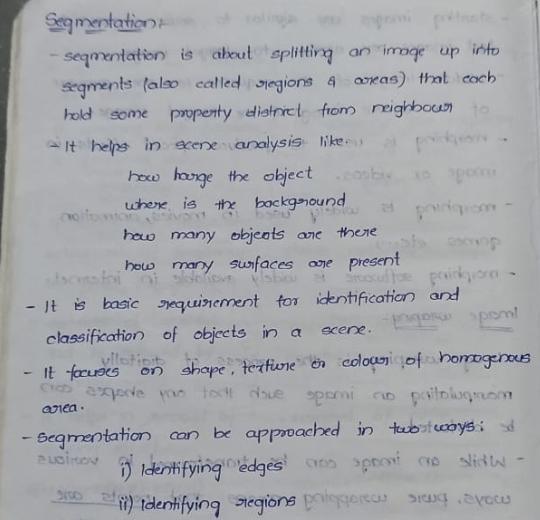 Segmentation:
- segmentation is about splitting an image up into
segments (also called regions & areas) that each
hold some property district from neighbour
- It helps in scene analysis like.
how harge the object
where is the background
how many objects are there
how many surfaces are present
- It is basic requirement for identification and
classification of objects in a scene.
- It focuses on shape, texture or colour of homogenous
area.
- Segmentation can be approached in two ways:
i) Identifying edges
ii) Identifying regions